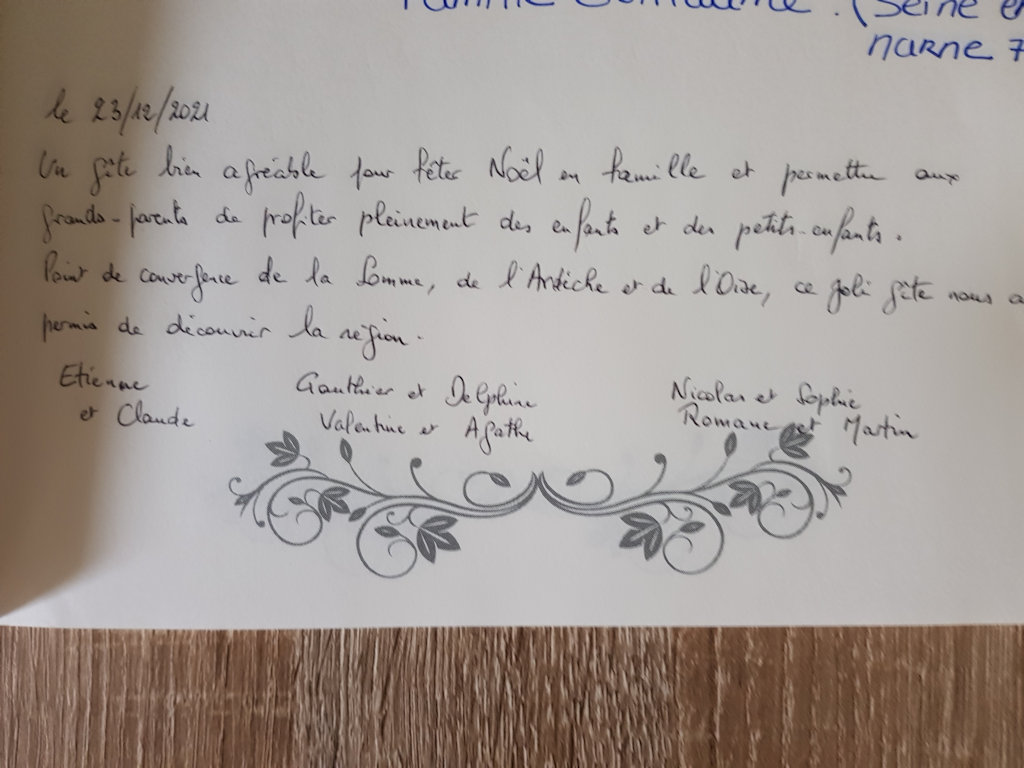 Famille (Seine et
marne 7
le 23/12/2021
Un gîte bien agréable pour fêter Noël en famille et permettre aux
grands-parents de profiter pleinement des enfants et des petits-enfants.
Point de convergence de la Somme, de l'Ardèche et de l'Oise, ce joli gîte nous a
permis de découvrir la région.
Etienne Gauthier et Delphine Nicolas et Sophie
et Claude Valentine et Agathe Romane et Martin